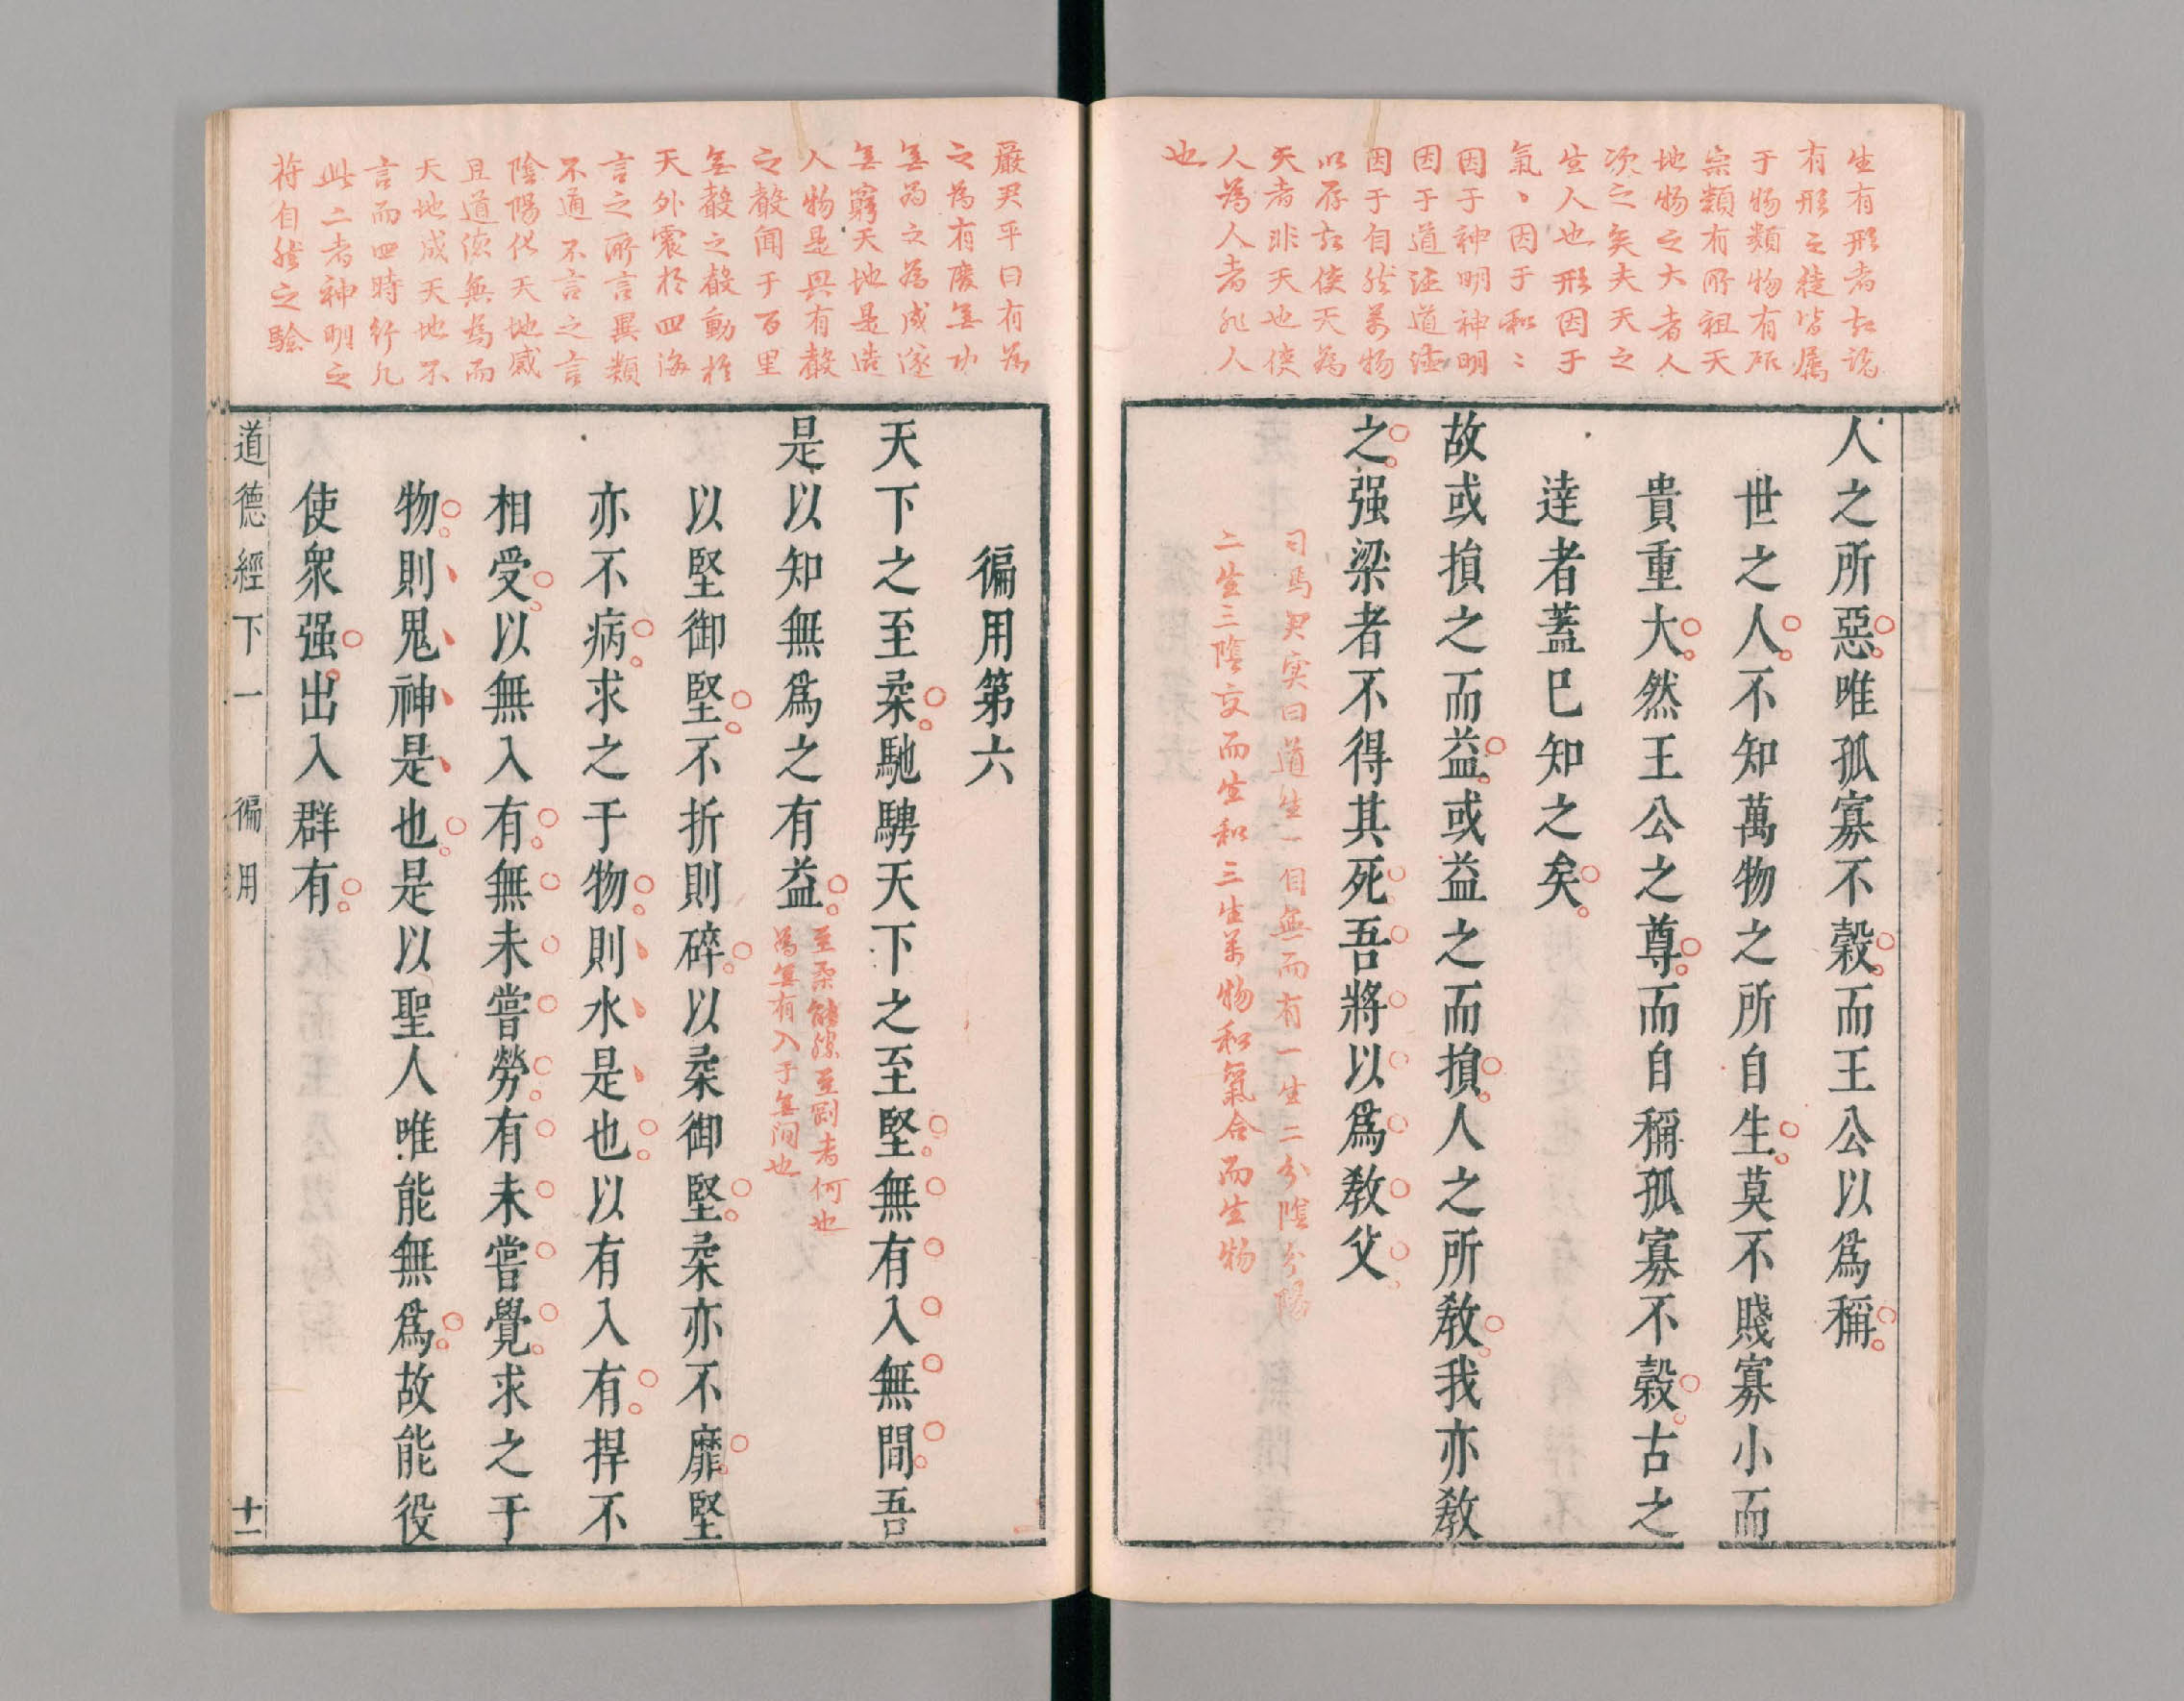 生有形者故識
有形之徒皆屬
于物類物有所
宗類有所祖天
地物之大者人
次之矣夫天之
生人也形因于
氣氣因于和和
因于神明神明
因于道德道德
因于自然萬物
以存故使天爲
天者非天也使
人爲人者非人
也
人之所惡唯孤寡不穀而王公以爲稱
世之人不知萬物之所自生莫不賤寡小而
貴重大然王公之尊而自稱孤寡不穀古之
達者蓋已知之矣
故或損之而益或益之而損人之所教我亦教
之强梁者不得其死吾將以爲教父
司馬君実曰道生一自無而有一生二分陰分陽
二生三陰交而生和三生萬物和氣合而生物
嚴君平曰有爲
之爲有廢無功
無爲之爲成遂
無窮天地是造
人物是興有聲
之聲聞于百里
無聲之聲動於
天外震於四海
言之所言異類
不通不言之言
陰陽化天地感
且道德無爲而
天地成天地不
言而四時行凡
此二者神明之
符自然之驗
徧用第六
天下之至柔馳騁天下之至堅無有入無間吾
是以知無爲之有益
至柔能勝至剛者何也
爲無有入于無间也
以堅御堅不折則碎以柔御堅柔亦不靡堅
亦不病求之于物則水是也以有入有捍不
相受以無入有無未嘗勞有未嘗覺求之于
物則鬼神是也是以聖人唯能無爲故能役
使衆强出入群有
道德經下一 徧用 十一